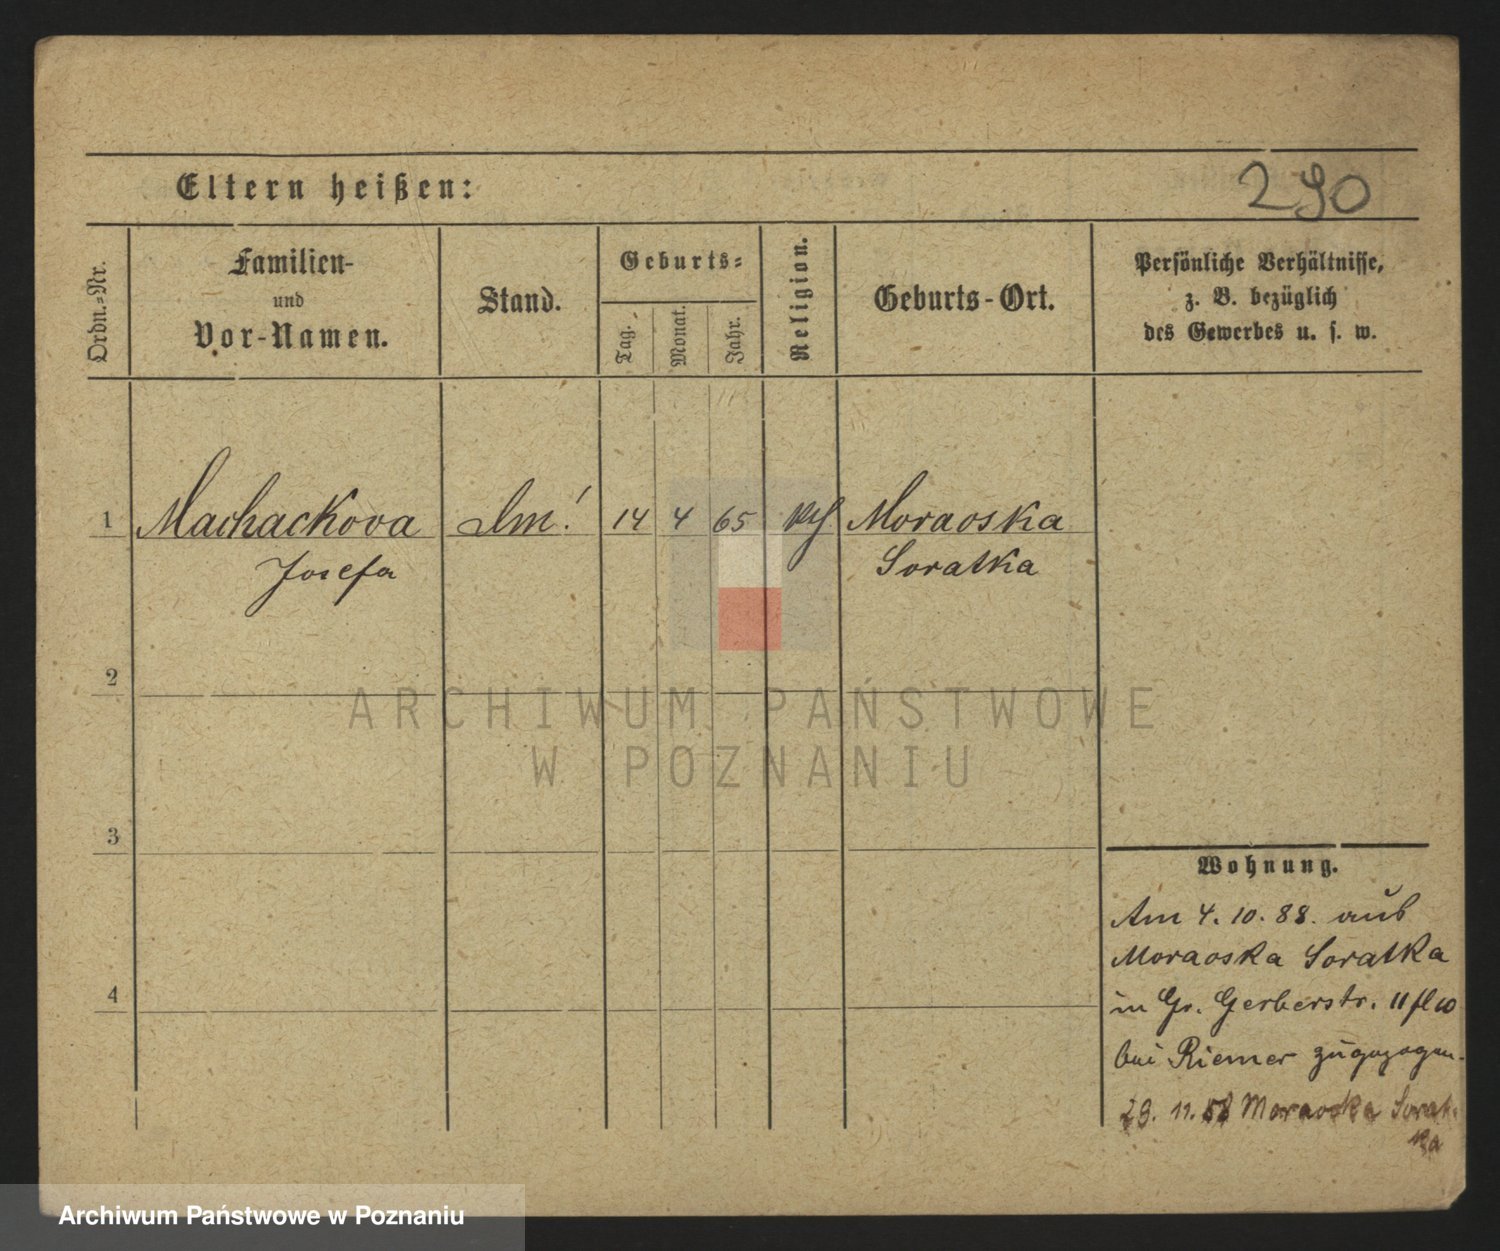 Eltern heißen:
290
Ordn.-Nr.
Familien-
und
Vor-Namen.
Stand.
Geburts-
Tag.
Monat.
Jahr.
Religion.
Geburts-Ort.
Persönliche Verhältnisse,
z. B. bezüglich
des Gewerbes u. s. w.
1 Machackova 14 4 65 Moraoska
Josefa Soratka
2
3
4
Wohnung.
Am 4. 10. 88. aus
Moraoska Soratka
in Gr. Gerberstr. 11
bei Riemer zugezogen.
29. 11. 88 Moraoska Sorat-
ka
ARCHIWUM PAŃSTWOWE
W POZNANIU
Archiwum Państwowe w Poznaniu